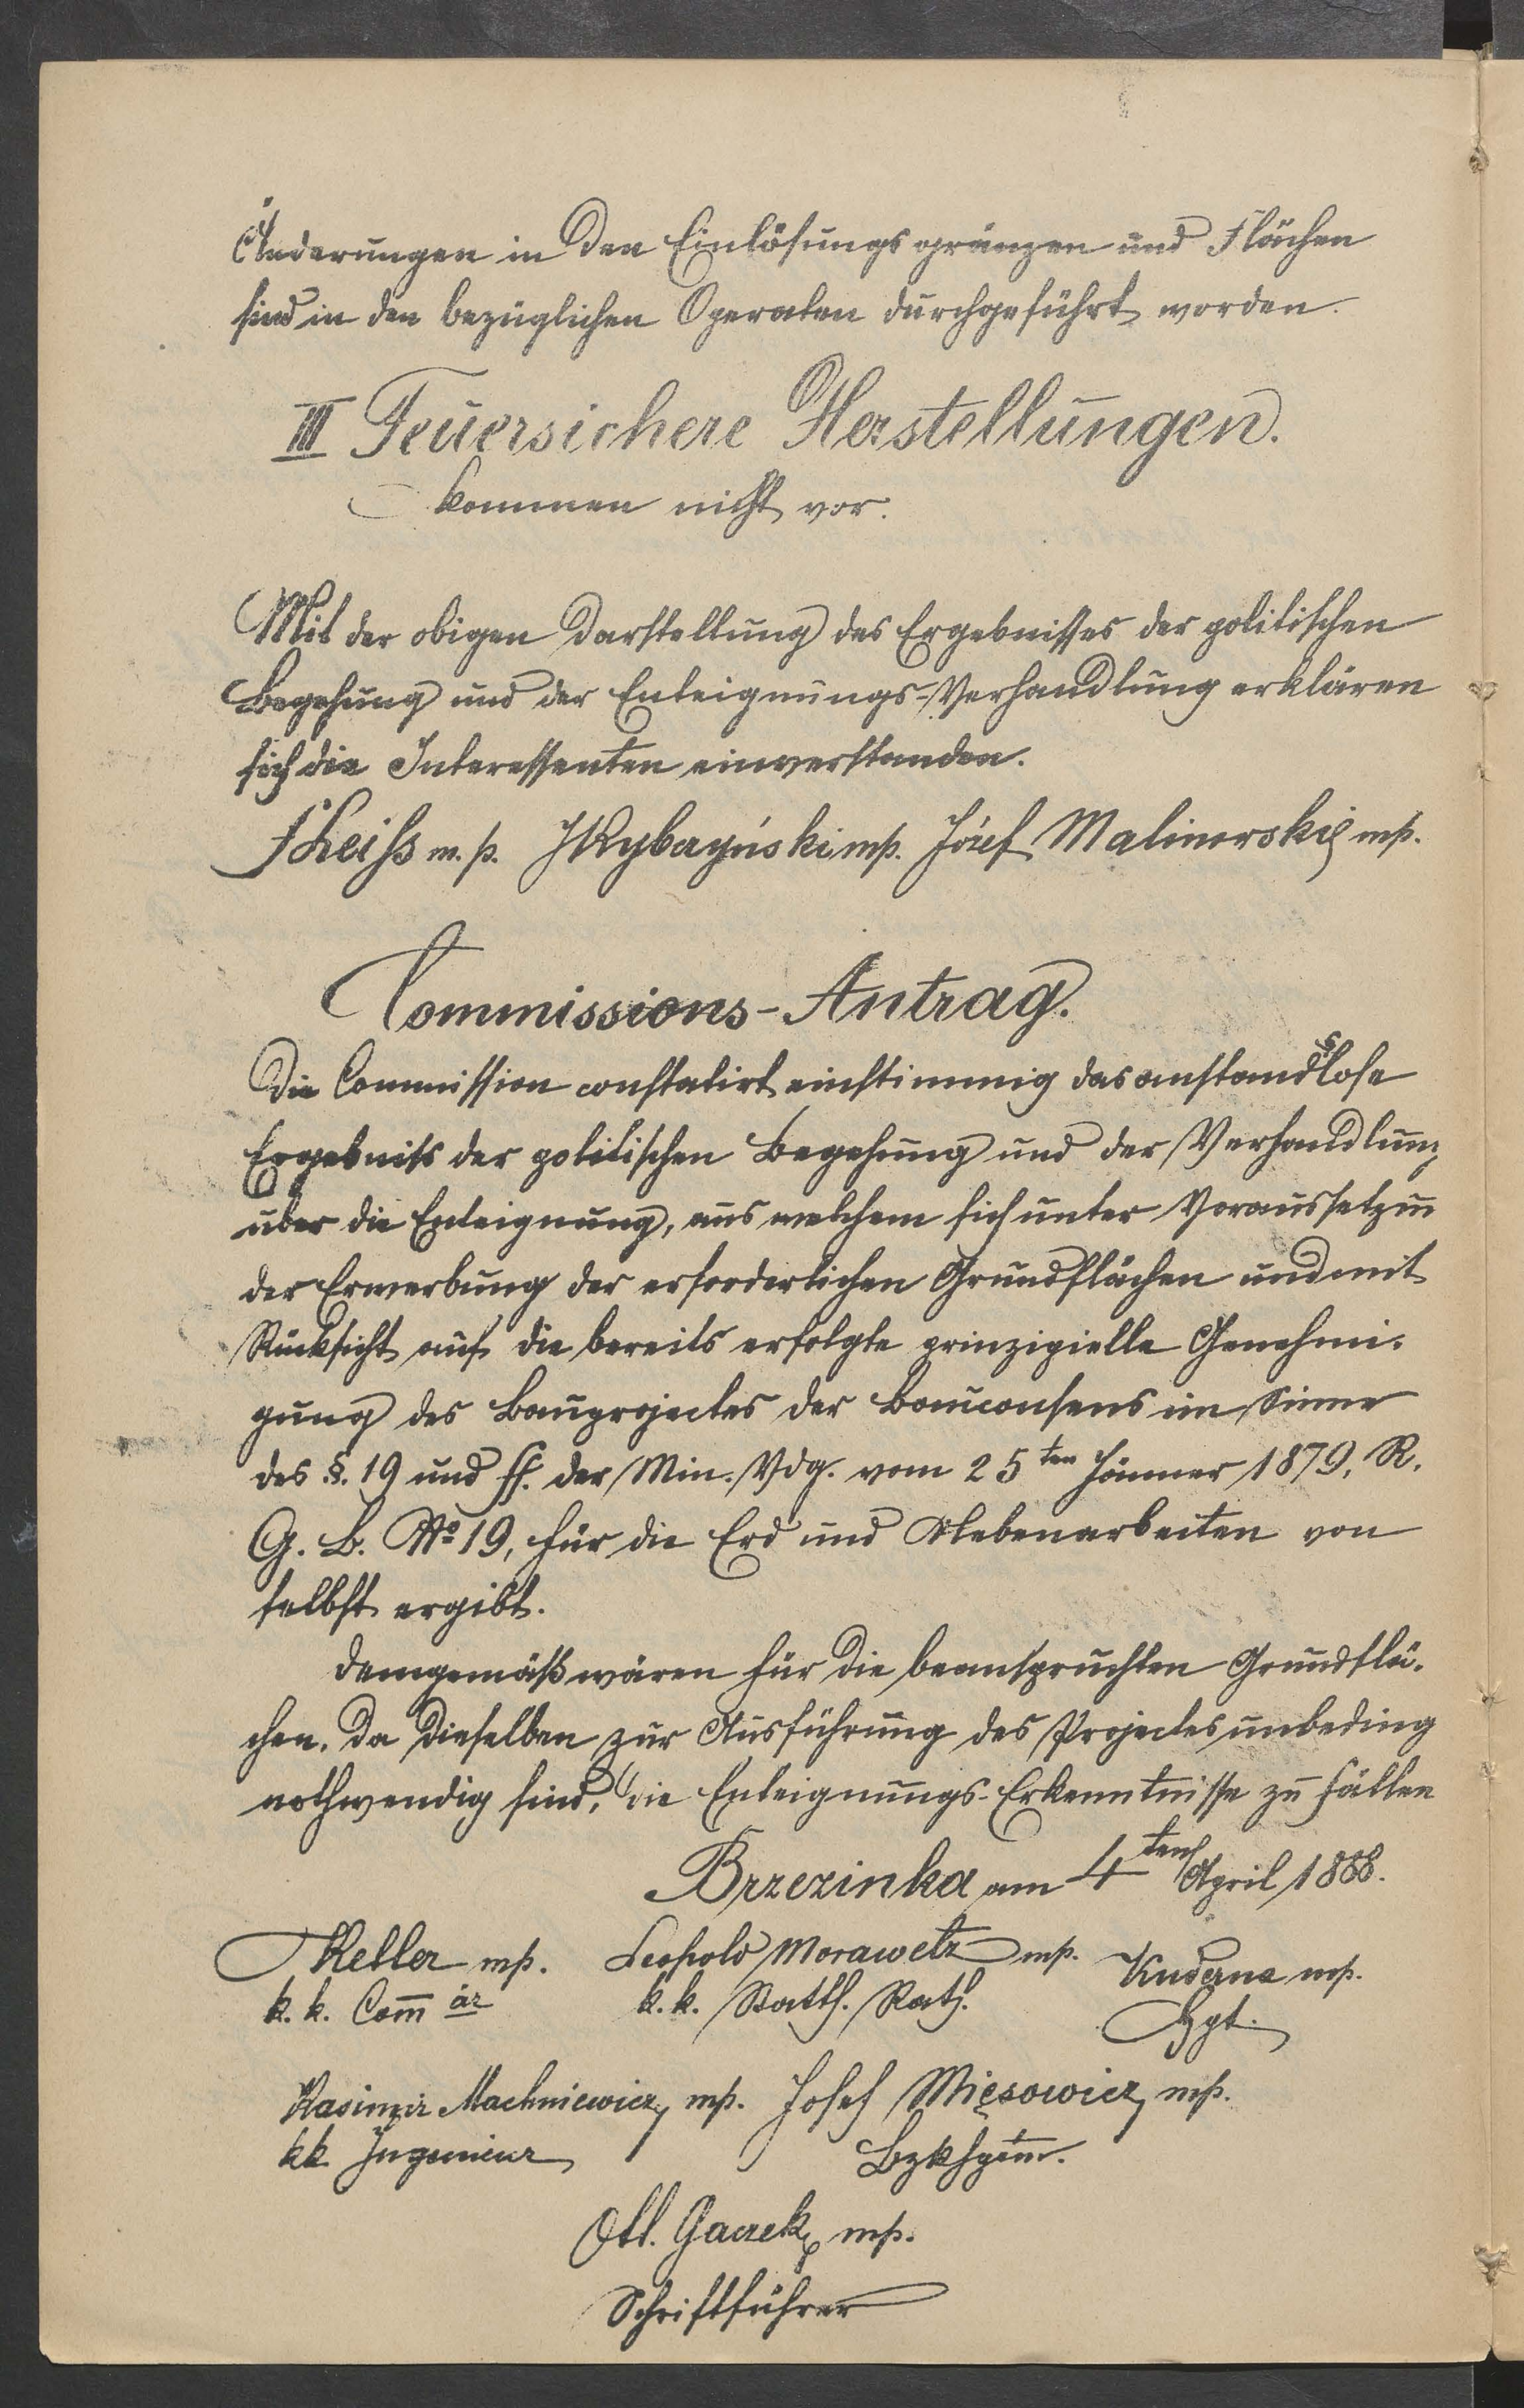 Änderungen in den Einlösungsgränzen und Flächen
sind in den bezüglichen Operaten durchgeführt worden.
III Feuersichere Herstellungen.
kommen nicht vor.
Mit der obigen Darstellung des Ergebnisses der politischen
Begehung und der Enteignungs-Verhandlung erklären
sich die Interessenten einverstanden.
Theiss m. p. mp. Józef Malinowski mp.
Commissions-Antrag.
Die Commission constatirt einstimmig das anstandslose
Ergebniss der politischen Begehung und der Verhandlung
über die Enteignung, aus welchem sich unter Voraussetzun
der Erwerbung der erforderlichen Grundflächen und mit
Rücksicht auf die bereits erfolgte prinzipielle Genehmi-
gung des Bauprojectes der Bauconsens im Sinne
des §. 19 und ff. der Min. Vdg. vom 25ten Jänner 1879, R.
G. B. No 19, für die Erd und Nebenarbeiten von
selbst ergibt.
Demgemäß wären für die beanspruchten Grundflä-
chen, da dieselben zur Ausführung des Projectes unbeding
nothwendig sind, die Enteignungs-Erkenntnisse zu fällen
Brzezinka am 4ten April 1888.
Keller mp. Leopold Morawetz mp. Kuderna mp.
k. k. Commär k. k. Statth. Rath. Hpt.
Kasimir Machniewicz mp. Josef Mięsowicz mp.
kk Ingenieur Bzkhptm.
Otl. Gaczek mp.
Schriftführer